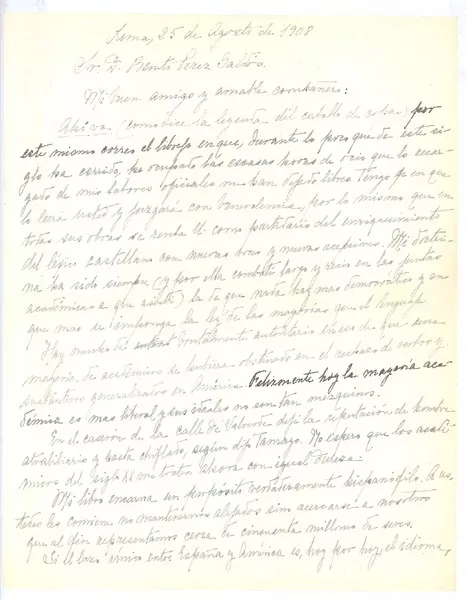 Lima, 25 de Agosto de 1908
Sr. D. Benito Perez Galdós.
Mi buen amigo y amable compañero:
Ahí va (como dice la leyenda del caballo de copas) por
este mismo correo el librejo en que, durante lo poco que de este si-
glo ha corrido, he ocupado las escasas horas de ocio que lo recar-
gado de mis labores oficiales me han dejado libres. Tengo fe en que
lo leerá usted y juzgará con benevolencia, por lo mismo que en
todas sus obras se revela U. como partidario del enriquecimiento
del léxico castellano con nuevas voces y nuevas acepciones. Mi doctri-
na ha sido siempre (y por ella combatí larga y recio en las juntas
académicas a que asistí) la de que nada hay mas democrático y en
que mas se imponga la ley de las mayorías que el lenguaje
Hay mucho de brutalmente autoritario en eso de que una
mayoría de académicos se hubiera obstinado en el rechazo de verbos y
sustantivos generalizados en América. Felizmente hoy la mayoría aca-
démica es mas liberal y sus ideales no son tan mezquinos.
En el caserón de la calle de Valverde dejé la reputación de hombre
atrabiliario y hasta chiflado, según dijo Tamayo. No espero que los acadé-
micos del siglo XX me tratan ahora con igual dureza.
Mi libro encarna un propósito verdaderamente hispanófilo. A us-
tedes les conviene no mantenernos alejados sin acercarse a nosotros
que al fin representamos cerca de cincuenta millones de seres.
Si el lazo único entre España y América es, hoy por hoy, el idioma,